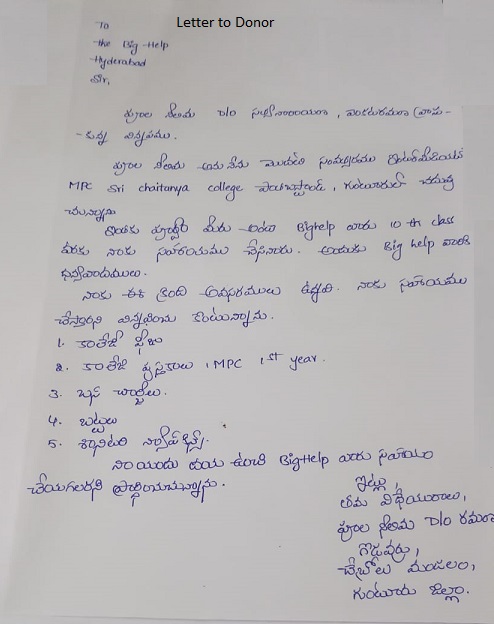 Letter to Donor
To
The Big-Help
Hyderabad
Sir,
పూల నీలిమ D/o సత్యనారాయణ, వెంకటరమణ వ్రాసు-
-కున్న విన్నపము.
పూల నీలిమ అను నేను మొదటి సంవత్సరము ఇంటర్మీడియట్
MPC Sri chaitanya college గుంటూరులో చదువు
చున్నాను
మీరు అంటే Bighelp వారు 10th class
వరకు నాకు సహాయము చేసినారు. అందుకు Big help వారికి
ధన్యవాదములు.
నాకు ఈ క్రింది అవసరములు ఉన్నవి. నాకు సహాయము
చేస్తారని విన్నవించు కొంటున్నాను.
1. కాలేజీ ఫీజు
2. కాలేజీ పుస్తకాలు, MPC 1st year.
3. బస్ చార్జీలు.
4. బట్టలు
5. శానిటరీ నాప్కిన్స్.
నా యందు దయ ఉంచి BigHelp వారు సహాయం
చేయగలరని ప్రార్థించుచున్నాను.
ఇట్లు,
తమ విధేయురాలు,
పూల నీలిమ D/o రమణ
చేబ్రోలు మండలం,
గుంటూరు జిల్లా.